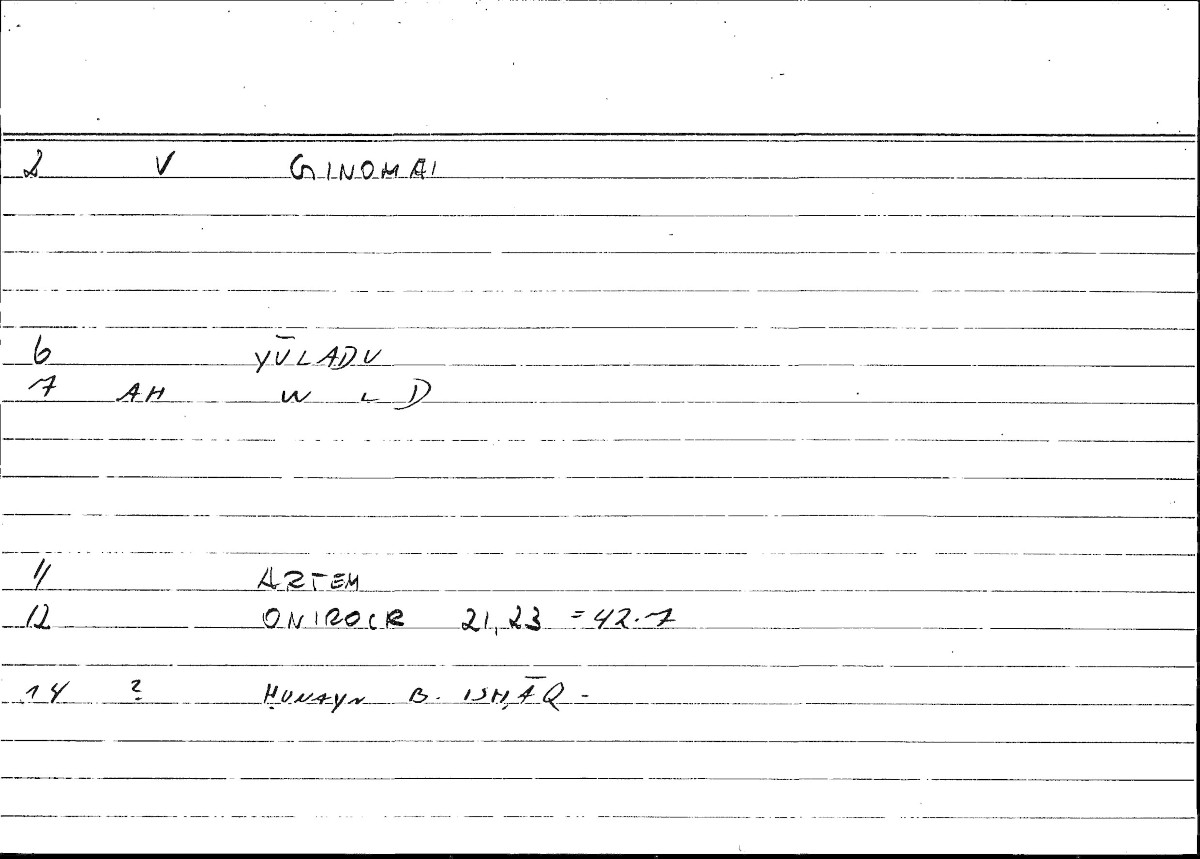 2 V GINOMAI
6 YŪLADU
7 AH W L D
11 ARTEM
12 ONIROCR 21,23 = 42.7
14 ? ḤUNAYN B. ISḤĀQ -